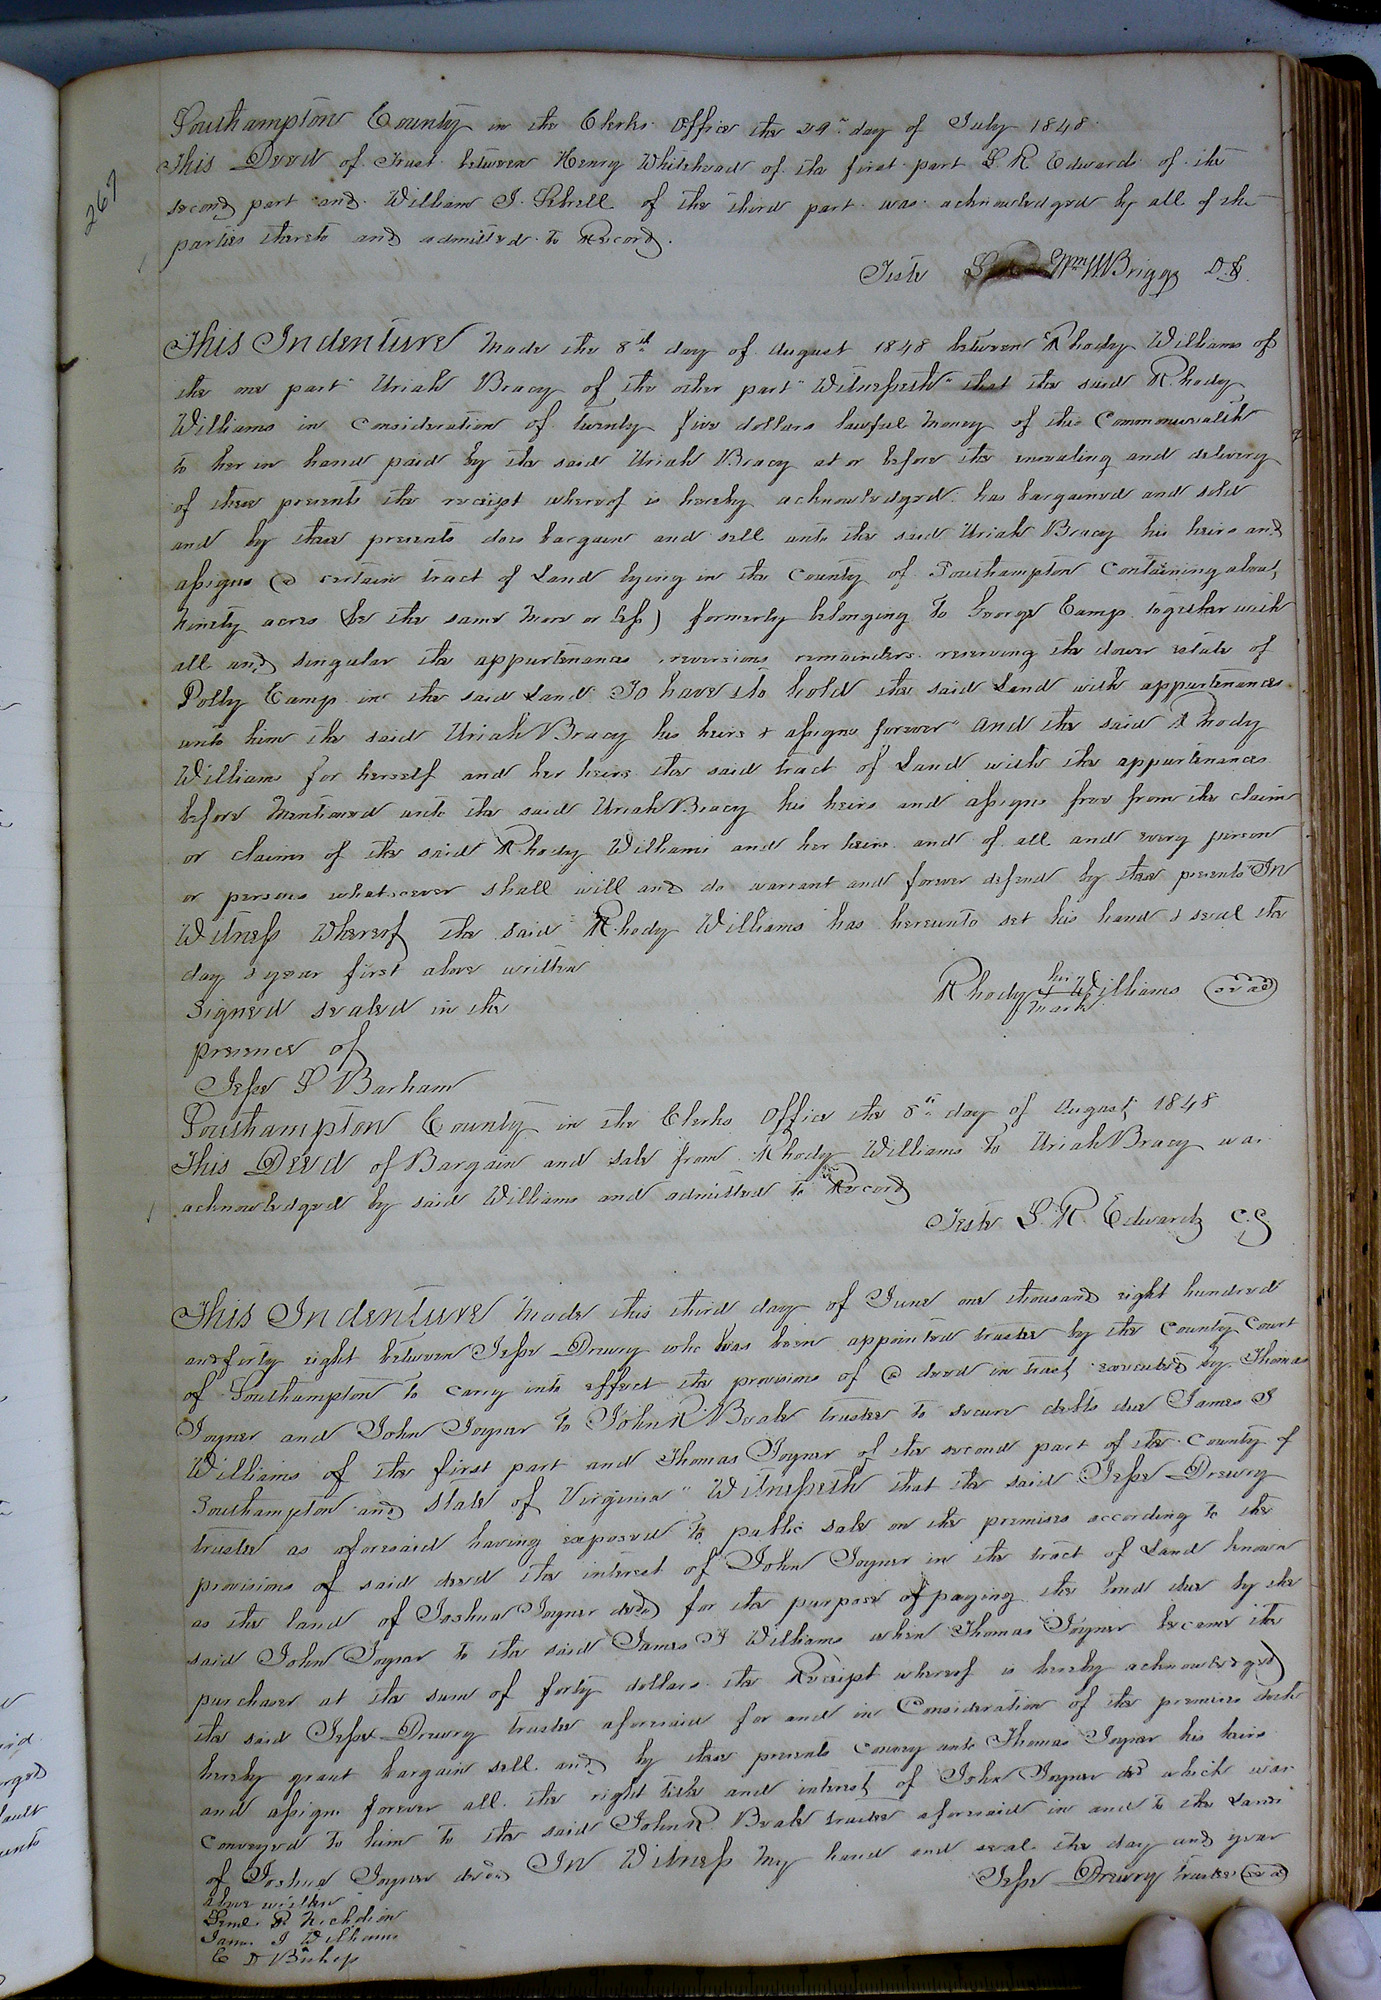 267
Southampton County in the Clerks Office the 29th day of July 1848
This Deed of Trust between Henry Whitehead of the first part L. R. Edwards of the
second part and William J. Sebrell of the third part was acknowledged by all of the
parties thereto and admitted to Record.
Teste Wm W Briggs D.C.
This Indenture Made the 8th day of August 1848 between Rhody Williams of
the one part Uriah Bracy of the other part "Witnesseth" that the said Rhody
Williams in consideration of twenty five dollars lawful money of this Commonwealth
to her in hand paid by the said Uriah Bracy at or before the ensealing and delivery
of these presents the receipt whereof is hereby acknowledged has bargained and sold
and by these presents does bargain and sell unto the said Uriah Bracy his heirs and
assigns (a certain tract of Land lying in the County of Southampton Containing about
Ninety acres (be the same more or less) formerly belonging to George Camp together with
all and singular the appurtenances reversions remainders reserving the dower estate of
Polly Camp in the said Land To have & to hold the said Land with appurtenances
unto him the said Uriah Bracy his heirs & assigns forever" And the said Rhody
Williams for herself and her heirs the said tract of Land with the appurtenances
before Mentioned unto the said Uriah Bracy his heirs and assigns free from the claim
or claims of the said Rhody Williams and her heirs and of all and every person
or persons whatsoever shall will and do warrant and forever defend by these presents In
Witness Whereof the said Rhody Williams has hereunto set his hand & seal the
day & year first above written
Rhody her + mark Williams seal
Signed sealed in the
presence of
Jesse S Barham
Southampton County in the Clerks Office the 8th day of August 1848
This Deed of Bargain and sale from Rhody Williams to Uriah Bracy was
acknowledged by said Williams and admitted to Record
Teste L. R. Edwards C.C
This Indenture Made this third day of June one thousand eight hundred
and forty eight between Jesse Drewry who has been appointed trustee by the County Court
of Southampton to carry into effect the provisions of a deed in trust executed by Thomas
Joyner and John Joyner to John R Beale trustee to secure debts due James J
Williams of the first part and Thomas Joyner of the second part of the County of
Southampton and State of Virginia "Witnesseth that the said Jesse Drewry
trustee as aforesaid having exposed to public sale on the premises according to the
provisions of said deed the interest of John Joyner in the tract of Land known
as the land of Joshua Joyner decd for the purpose of paying the bond due by the
said John Joyner to the said James J Williams when Thomas Joyner became the
purchaser at the sum of forty dollars the Receipt whereof is hereby acknowledged
the said Jesse Drewry trustee aforesaid for and in Consideration of the premises doth
hereby grant bargain sell and by these presents convey unto Thomas Joyner his heirs
and assigns forever all the right title and interest of John Joyner decd which was
conveyed to him to the said John R. Beale trustee aforesaid in and to the Lands
of Joshua Joyner decd In Witness My hand and seal the day and year
above written
Jesse Drewry trustee seal
R Nicholson
James J Williams
E D Bishop